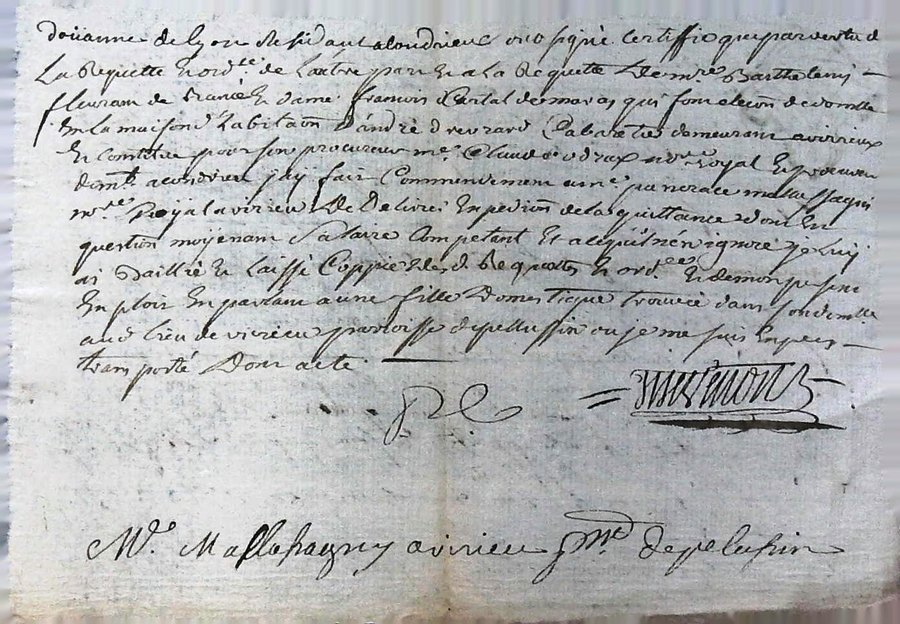 doüanne de lyon Residant a Condrieu soussigné certiffie que par vertu de
La Requette & ord.ce de L'autre part & a La Requette de m.re Barthelemi
fleuram de & dame francois qui font election de domille
En La maison d'habitaon d'andré drevrard Cabaretier demeurant a virrieux
Et Constitue pour son procureur me. Claude not.re Royal Et procureur
dem.t a condrieu jay fait Commendement a me. pancrace mallassagni
no.re Royal a virieu de De Livrer Expedion de la quittance dont En
question moyenant Salaire Competant Et a ce qu'il n'en ignore je Luy
ai Baillié & Laissé Coppie des d. Requettes & ord.ce & de mon present
Exploit En parlant a une fille Domestique trouvée dans son domille
aud. Lieu de virieu parroisse de pellussin ou je me suis Expres
transporté Dont acte

Mr. Mallassagny a virieu psse de pelussin